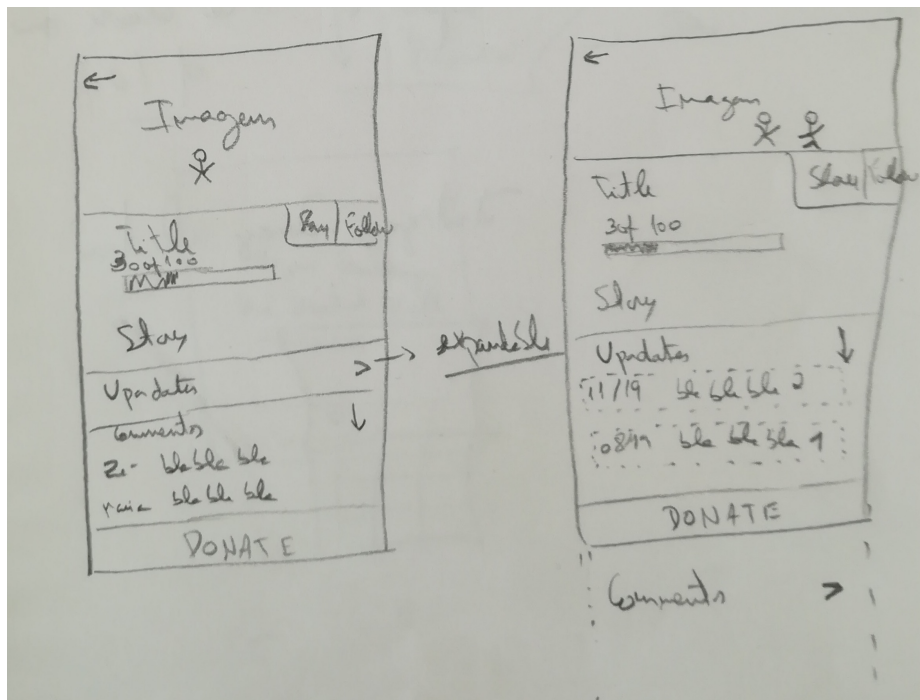 Imagem
Title
Follow
30 of 100
Story
Updates
Comments
bla bla bla
bla bla bla
DONATE
expandable
Imagem
Title
Share Follow
30 of 100
Story
Updates
11/19 bla bla bla 2
08/19 bla bla bla 1
DONATE
Comments